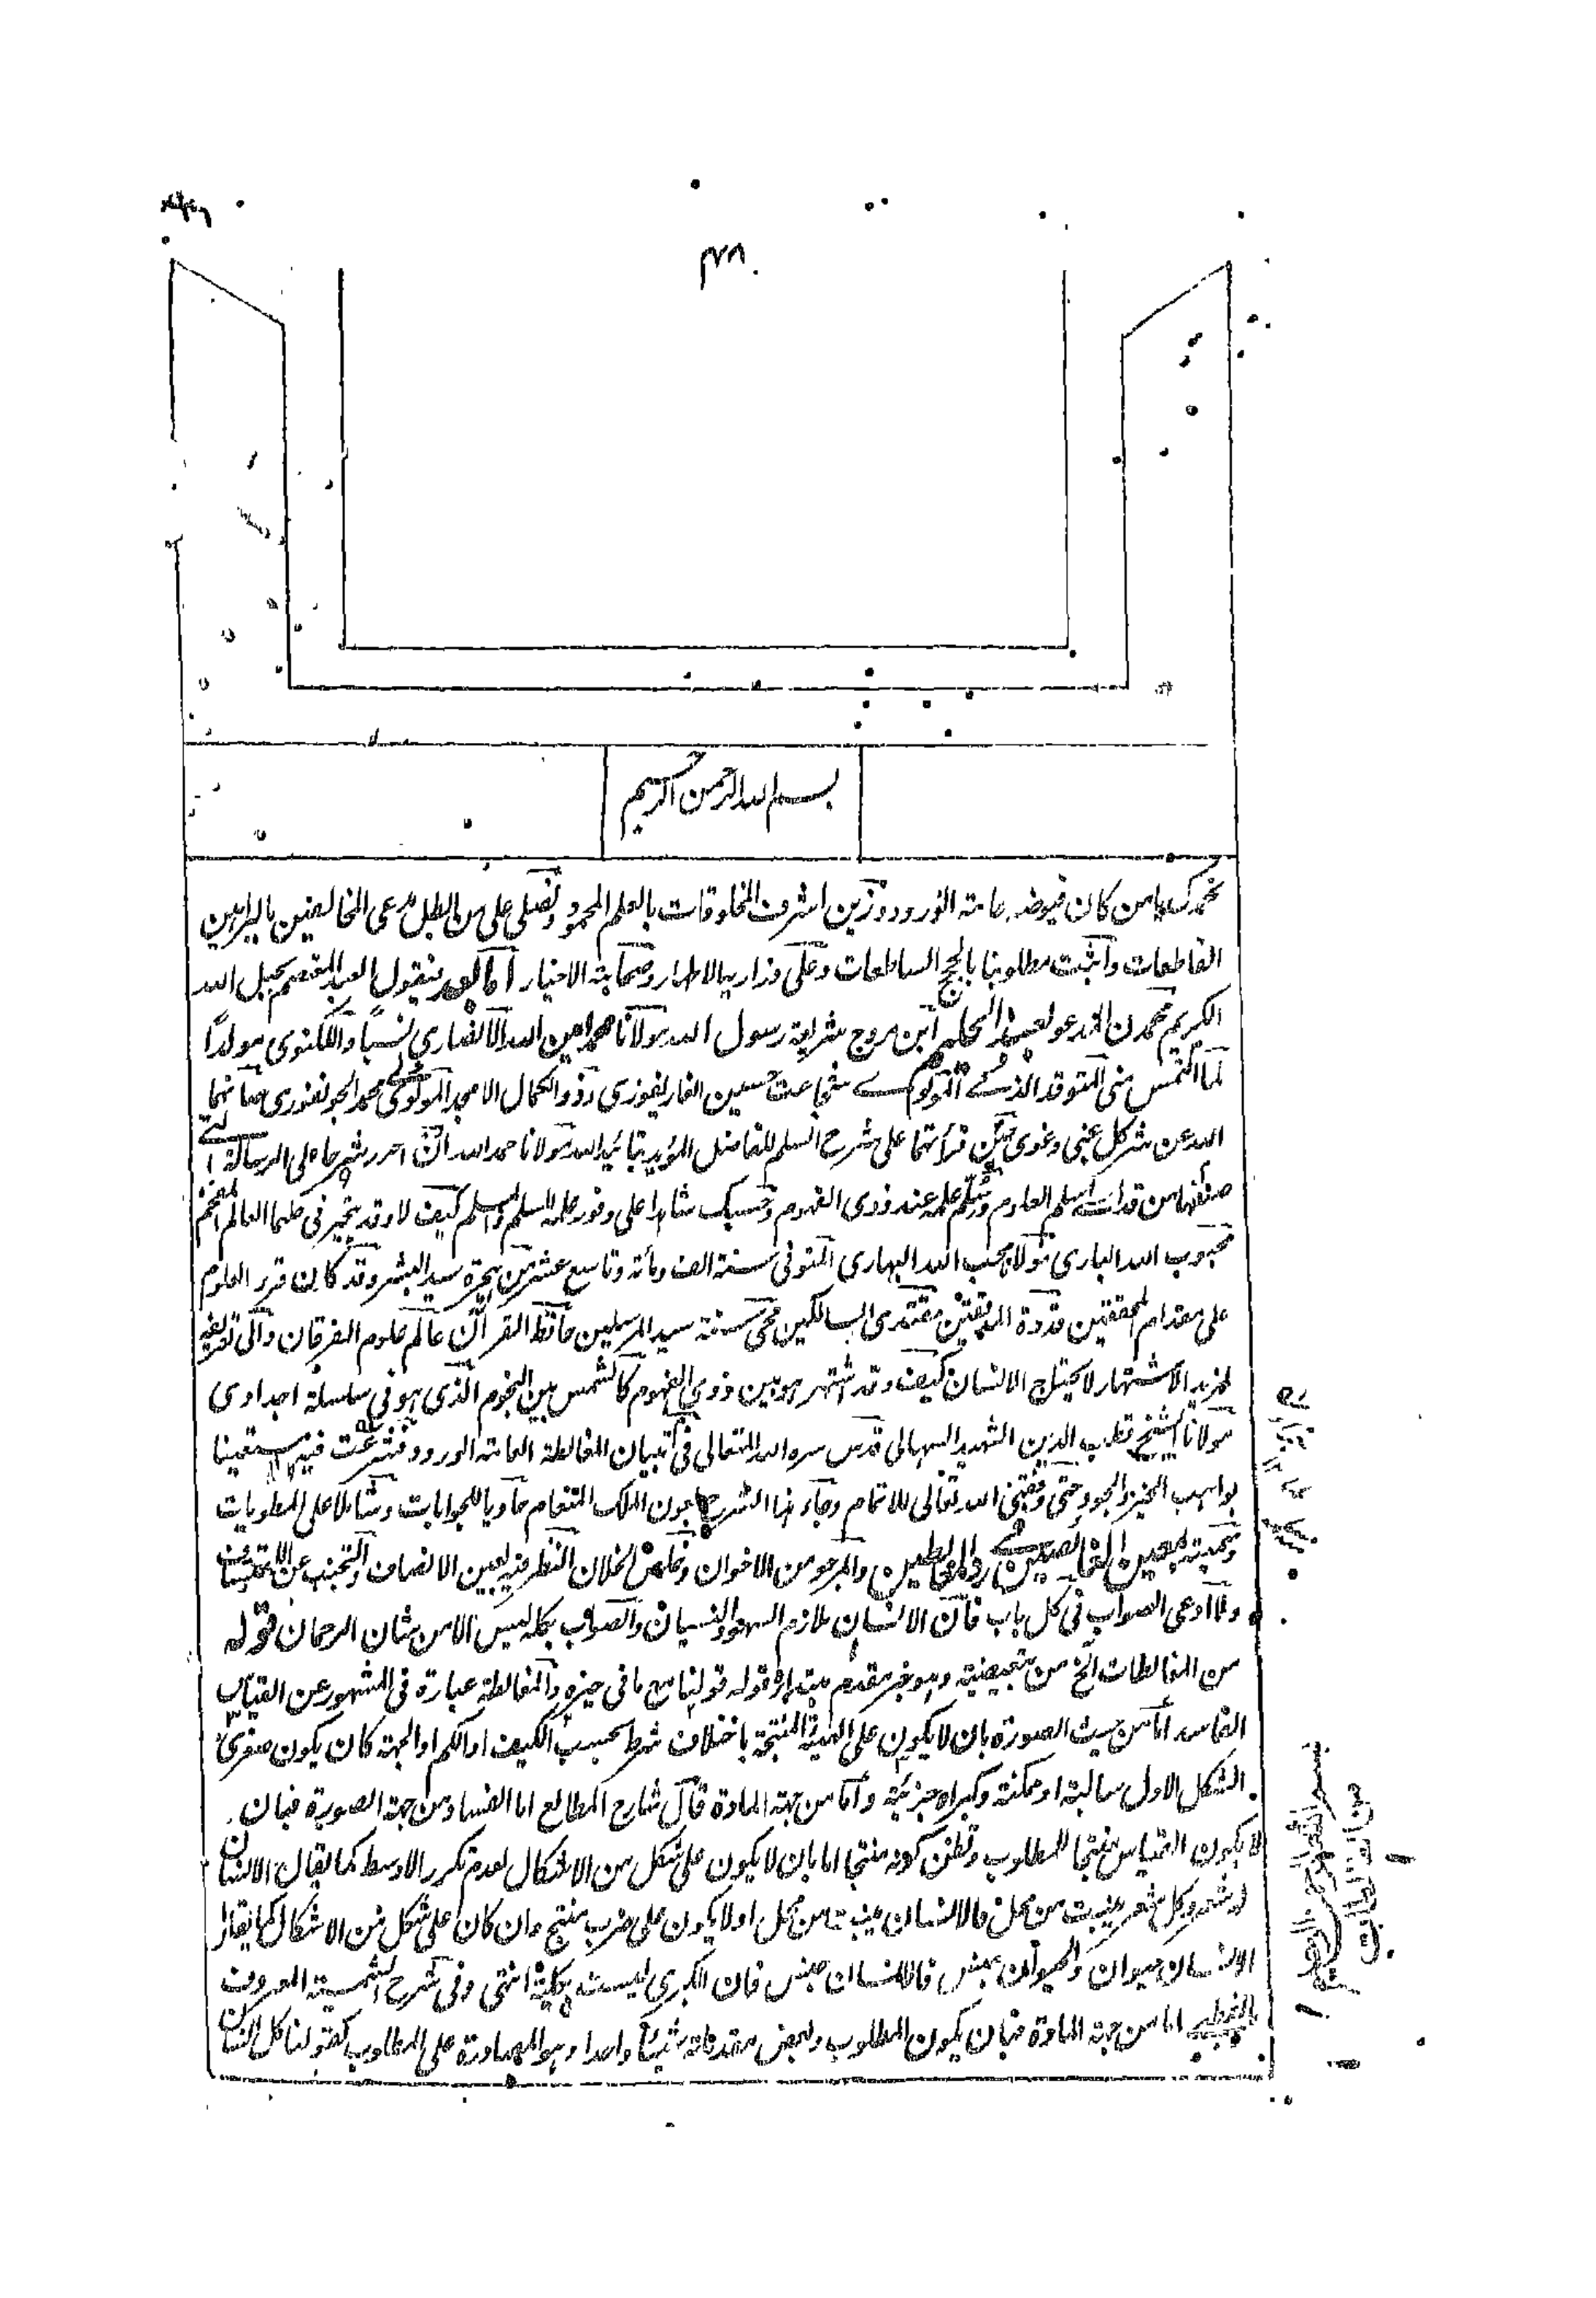 بسم الله الرحمن الرحيم
نحمدك يا من كان فيوضه عامة الورود وزين اشرف المخلوقات بالعلم المحمود ونصلى على من ابطل مدعى المخالفين بالبراهين
القاطعات واثبت مطلوبنا بالحجج الساطعات وعلى ذراريه الاطهار وصحابته الاخيار اما بعد فيقول العبد المعتصم بحبل الله
الكريم محمد ن المدعو بعبد الحليم ابن مروج شريعة رسول الله مولانا محمد امين الله الانصاري نسبا واللكنوى مولدا
لما التمس منى المتوقد الذكى المولوى شفاعت حسين الغازيفورى وذو الكمال الامجد المولوى محمد الجونفورى صانهما
الله عن شر كل غبى وغوى حين قرأتهما على شرح السلم للفاضل المؤيد بتائيد الله مولانا حمد الله ان احرر شرحا على الرسالة التى
صنفها من قدأت سلم العلوم وسلم علمه عند ذوى الفهوم وحسبك شاهدا على وفور علمه السلم والمسلم كيف لا وقد تحير فى حلهما العالم المفخم
محبوب الله البارى مولانا محب الله البهارى المتوفى سنة الف ومأته وتاسع عشر من هجرة سيد البشر وقد كان قرر العلوم
على مقدام المحققين قدوة المدققين مقتدى السالكين محى سنة سيد المرسلين حافظ القرآن عالم علوم الفرقان والى توصيفه
لمزيد الاشتهار لا يحتاج الانسان كيف وقد اشتهر هو بين ذوى الفهوم كالشمس بين النجوم الذى هو فى سلسلة اجدادى
مولانا الشيخ قطب الدين الشهيد السهالى قدس سره الله المتعالى فى تبيان المغالطة العامة الورود فشرعت فيه مستعينا
بواهب الخير والجود حتى وفقنى الله تعالى للاتمام وجاء هذا الشرح بعون الملك المنعام حاويا للجوابات وشاملا على المطويات
وسميته بمعين الغائصين فى رد المغالطين والمرجو من الاخوان وخلص الخلان النظر فيه بعين الانصاف والتجنب عن الاعتساف
ولا ادعى الصواب فى كل باب فان الانسان ملازم السهو والنسيان والصواب بكله ليس الا من شان الرحمان قوله
من المغالطات الخ من تبعيضية وهو خبر مقدم مبتداؤه قوله قولنا مع ما فى حيزه والمغالطة عبارة فى المشهور عن القياس
الفاسد اما من حيث الصورة بان لا يكون على الهيئة المنتجة باختلاف شرط بحسب الكيف او الكم او الجهة كان يكون صغرى
الشكل الاول سالبة او ممكنة وكبراه جزئية واما من جهة المادة قال شارح المطالع اما الفساد من جهة الصورة فبان
لا يكون القياس منتجا للمطلوب وتظن كونه منتجا اما بان لا يكون على شكل من الاشكال لعدم تكرر الاوسط كما يقال الانسان
له شعر وكل شعر ينبت من محل فالانسان ينبت من محل او لا يكون على ضرب منتج وان كان على شكل من الاشكال كما يقال
الانسان حيوان والحيوان جنس فالانسان جنس فان الكبرى ليست بكلية انتهى وفى شرح الشمسية المعروف
بالقطبى اما من جهة المادة فبان يكون المطلوب وبعض مقدماته شيئا واحدا وهو المصادرة على المطلوب كقولنا كل انسان
بسم الله الرحمن الرحيم